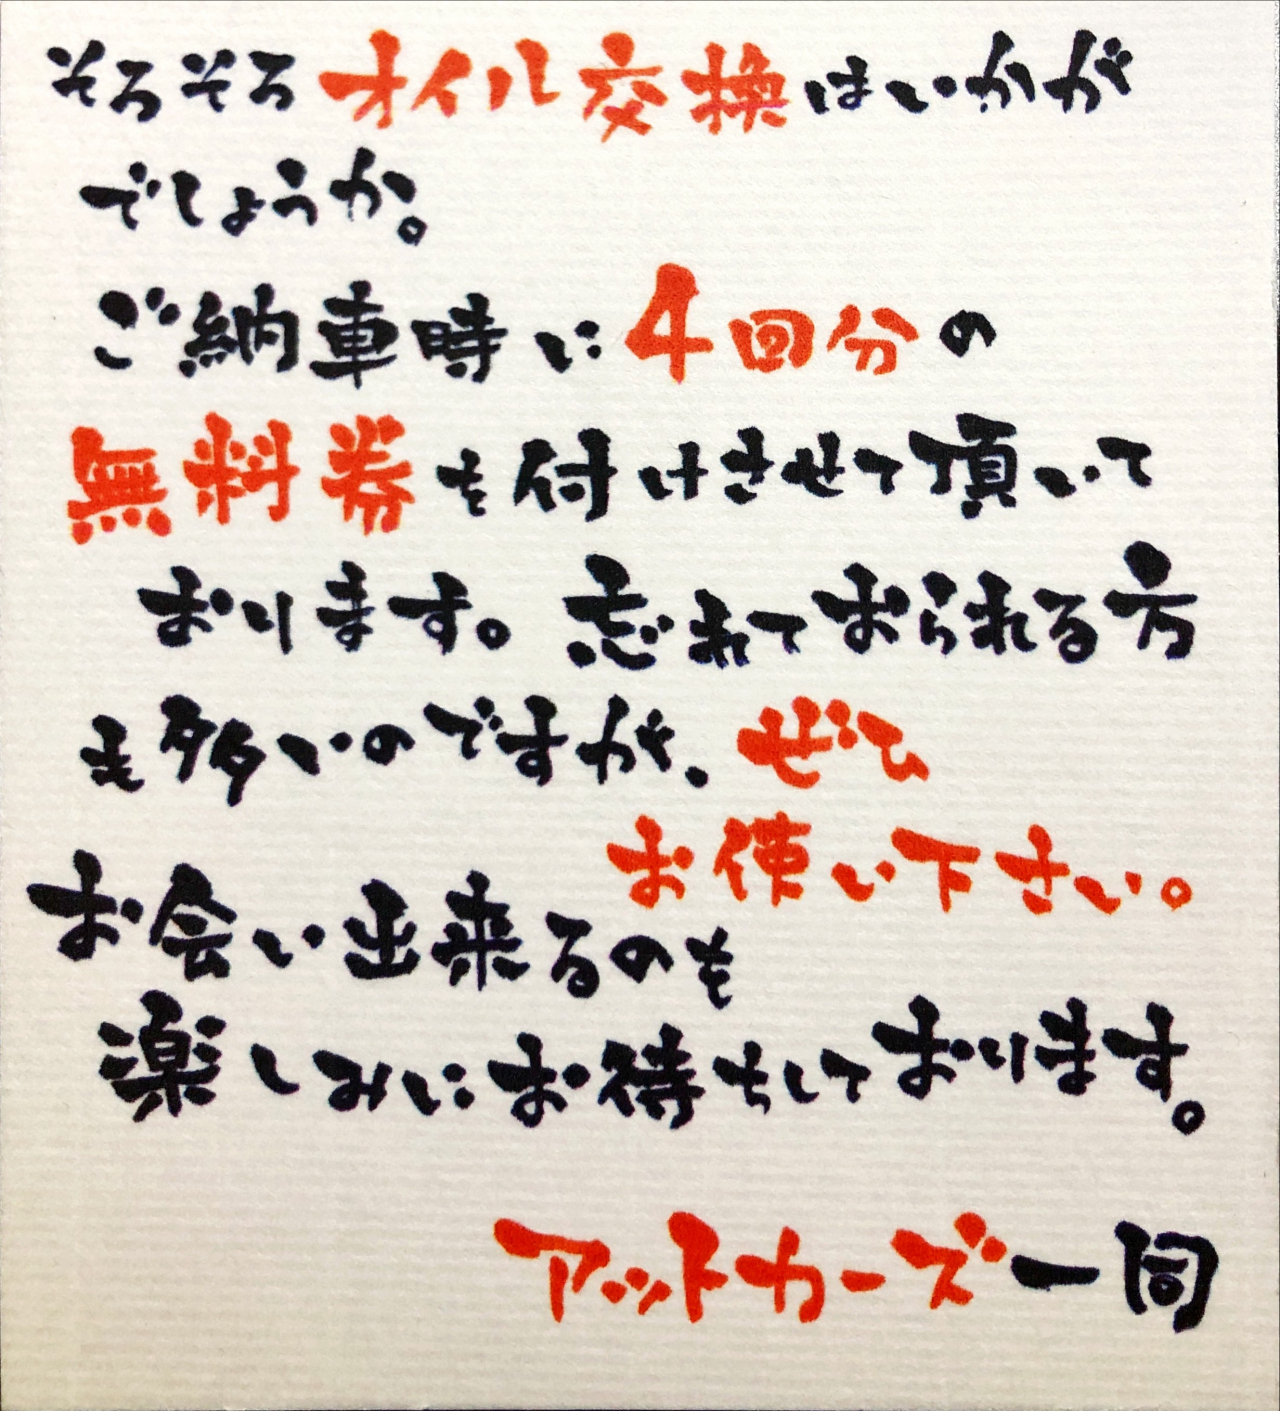 そろそろオイル交換はいかが
でしょうか。
ご納車時に4回分の
無料券を付けさせて頂いて
おります。忘れておられる方
も多いのですが、ぜひ
お使い下さい。
お会い出来るのも
楽しみにお待ちしております。
アットカーズ一同